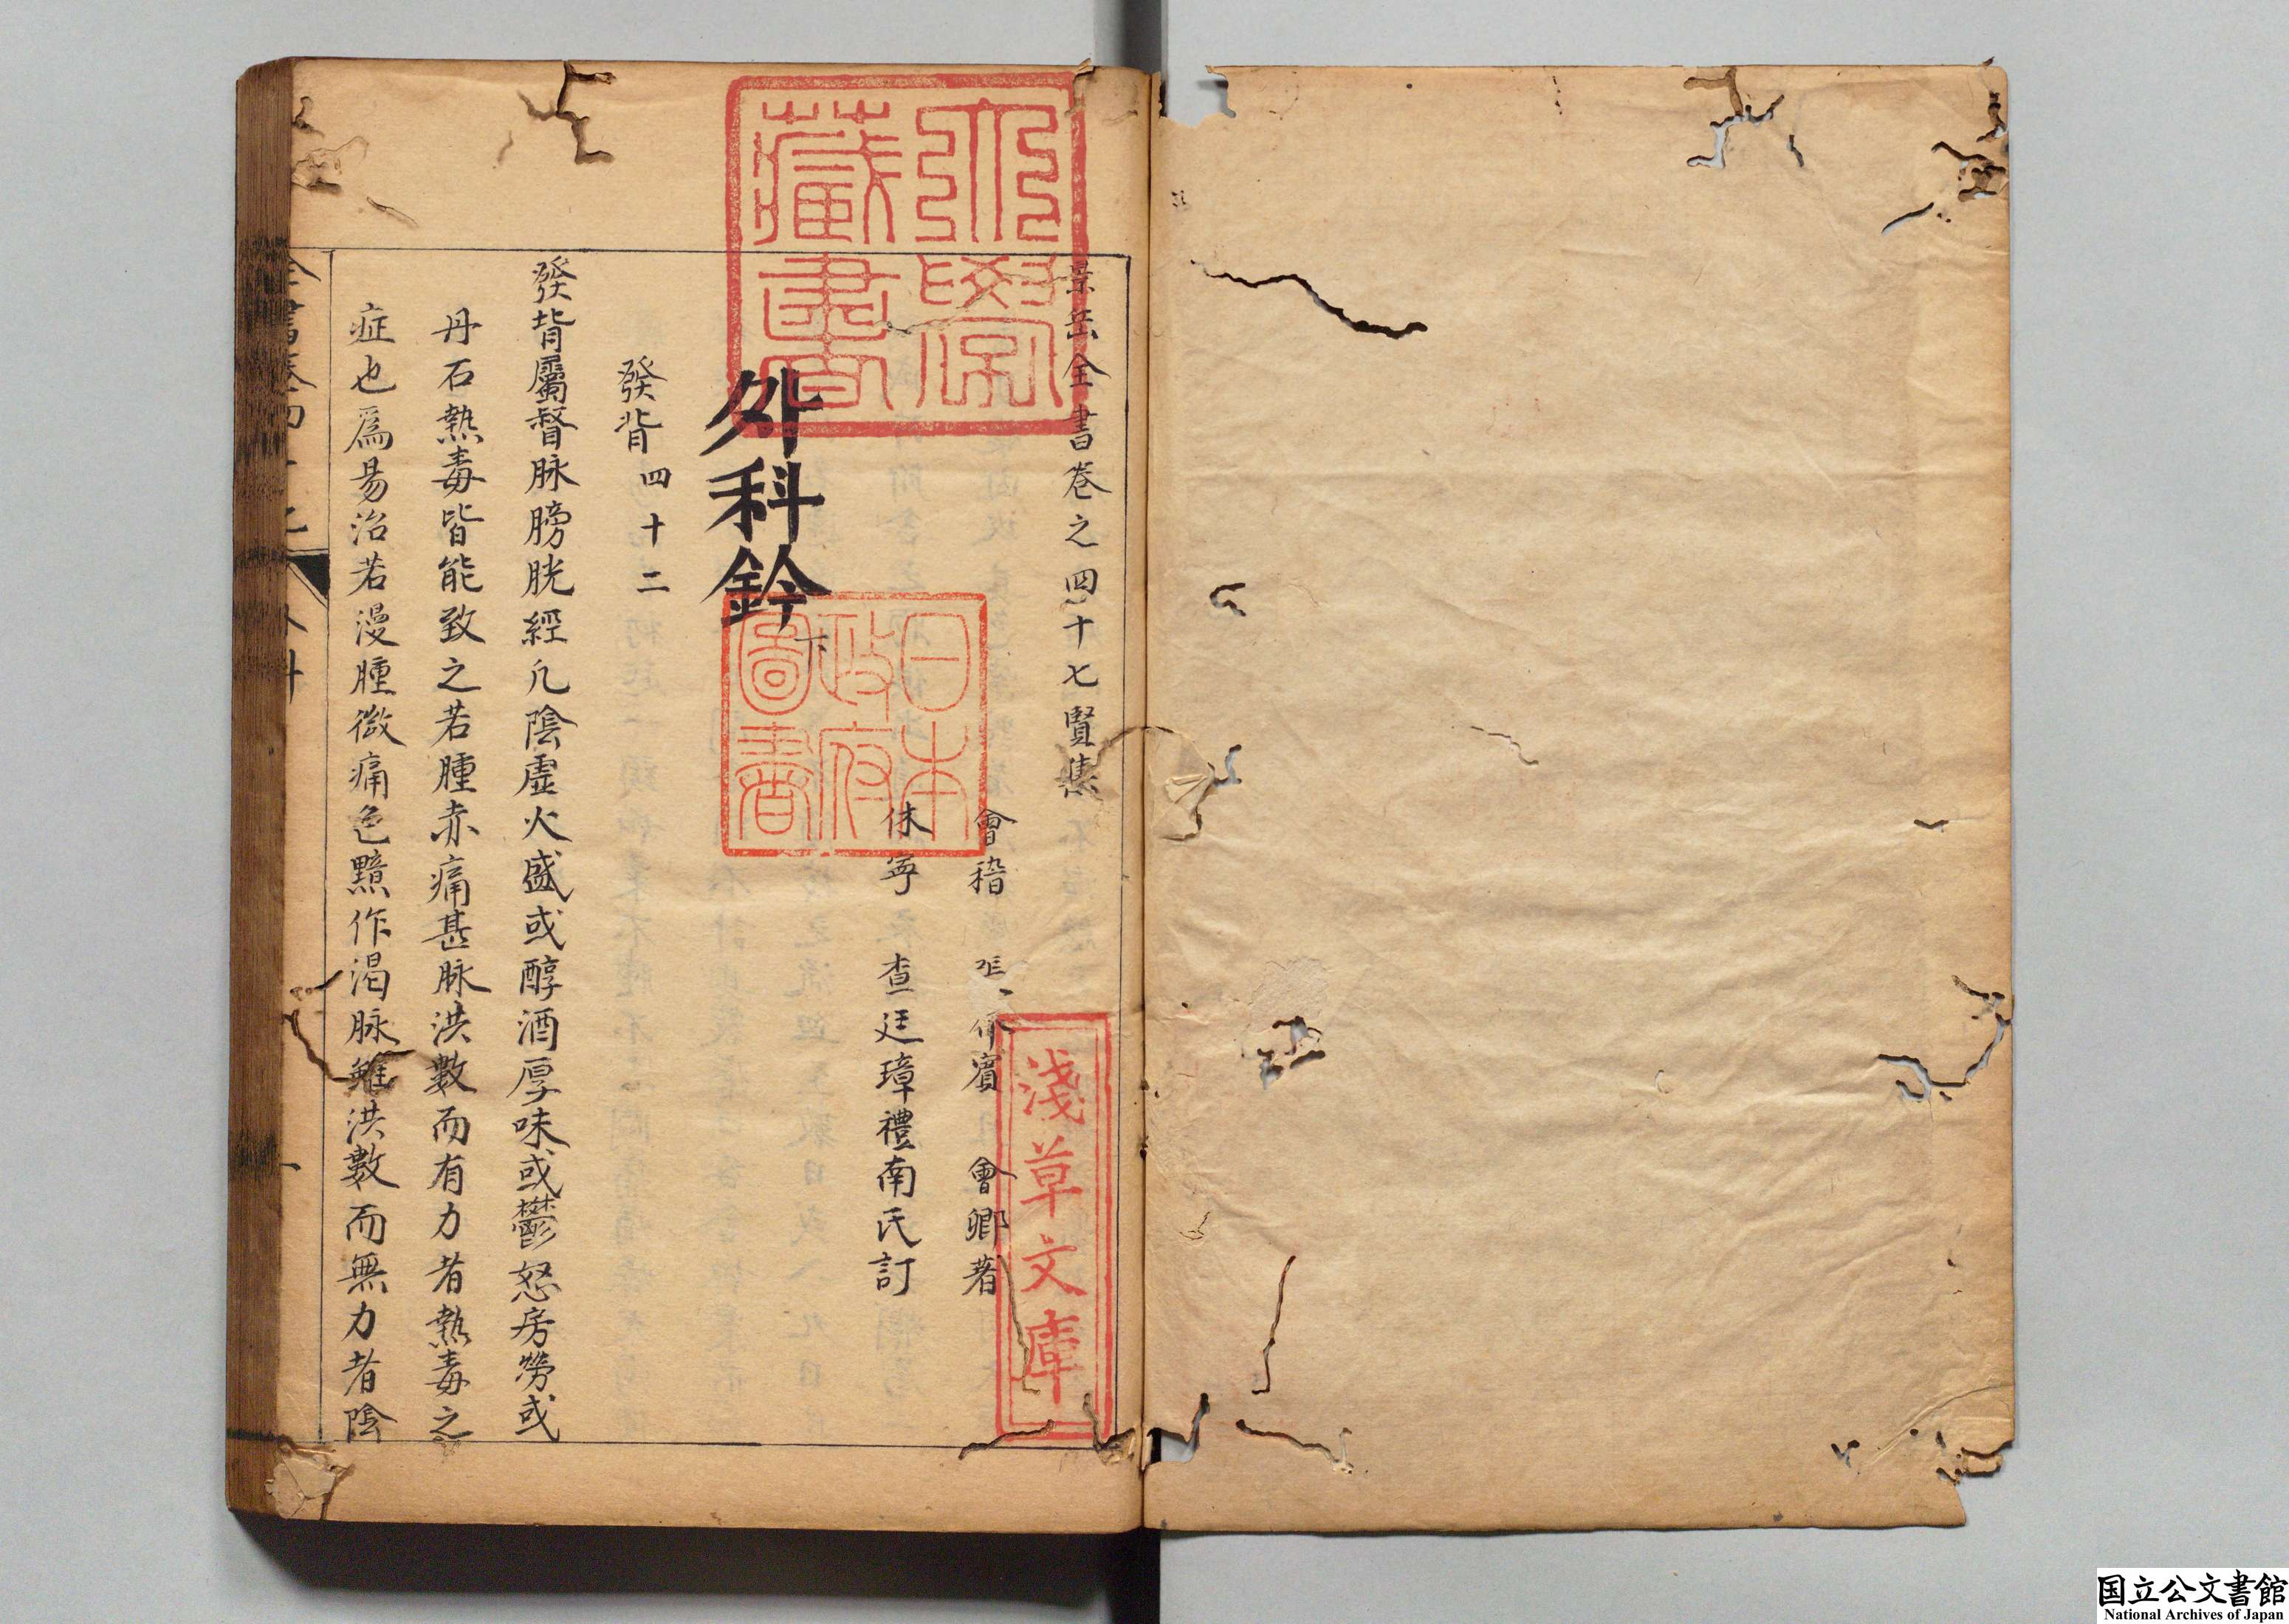 景岳全書卷之四十七賢集
會稽 張介賓 會卿著
休寧 查廷璋禮南氏訂
外科鈐下
發背 四十二
發背屬督脉膀胱經凢陰虛火盛或醇酒厚味或鬱怒房勞或
丹石熱毒皆能致之若腫赤痛甚脉洪數而有力者熱毒之
症也爲昜治若漫腫微痛色黯作渴脉雖洪數而無力者陰
大學
藏書
日本
政府
圖書
淺草文庫
国立公文書館
National Archives of Japan